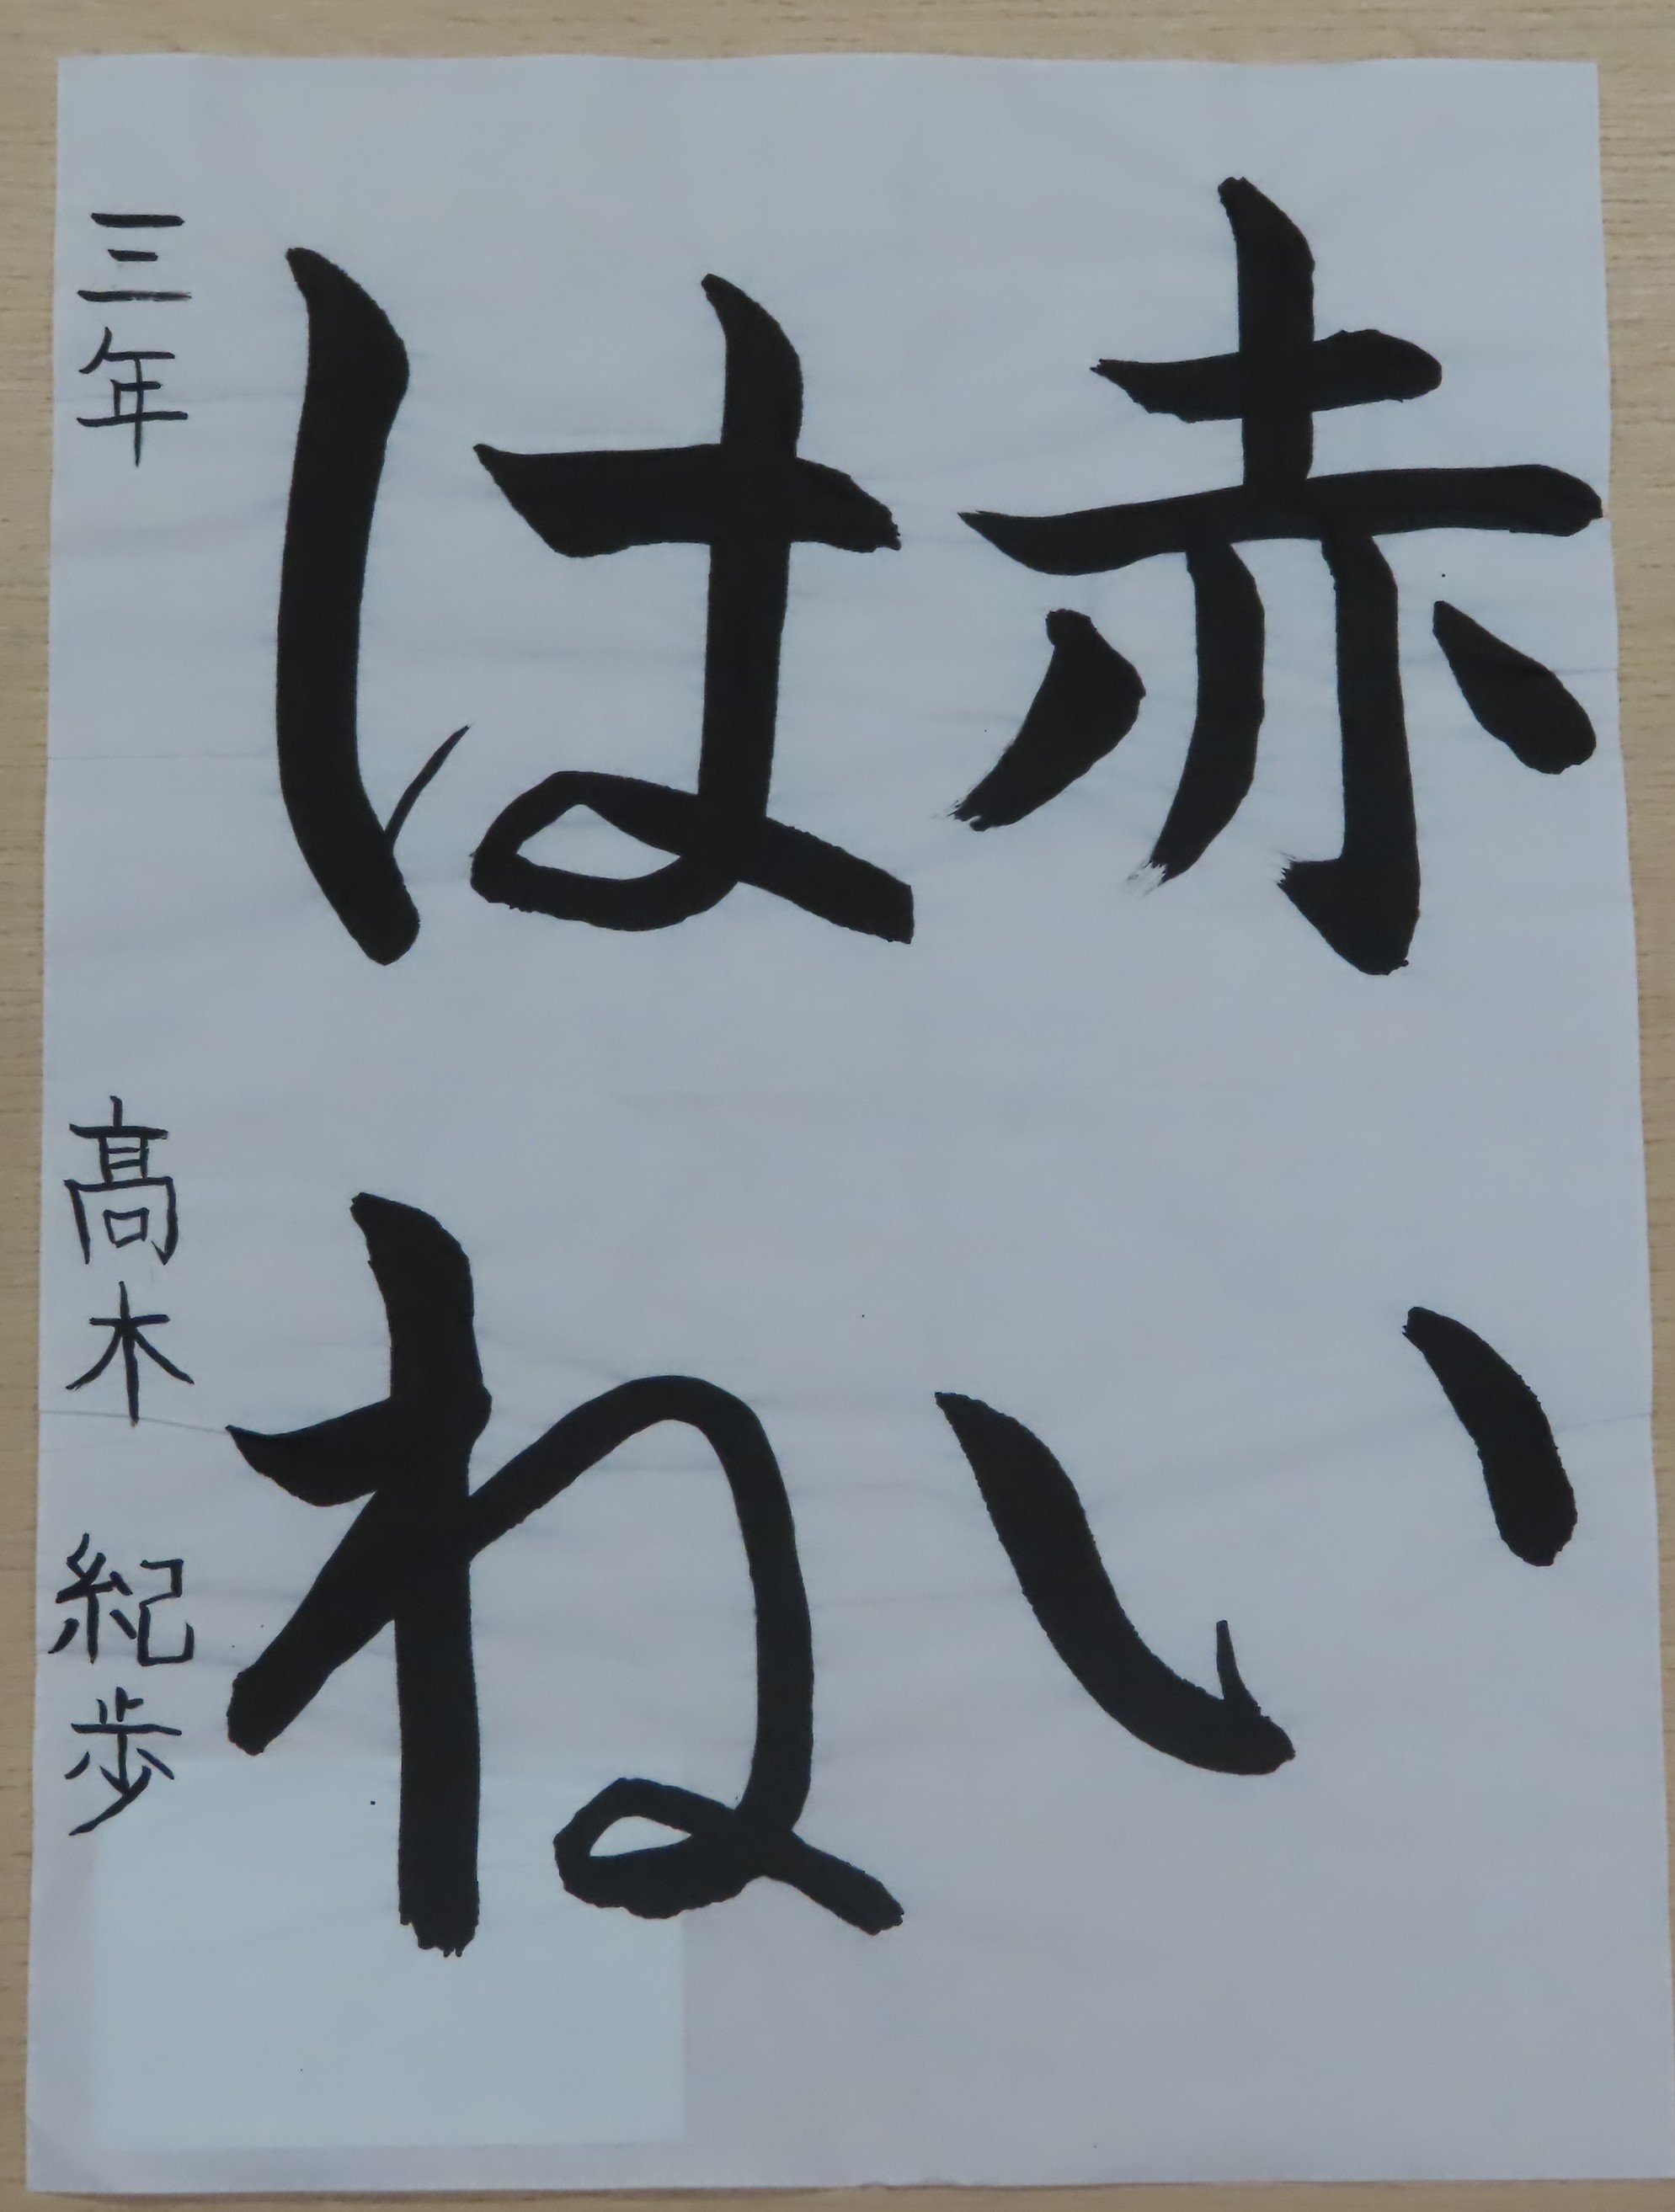 赤い
はね
三年 髙木 紀歩